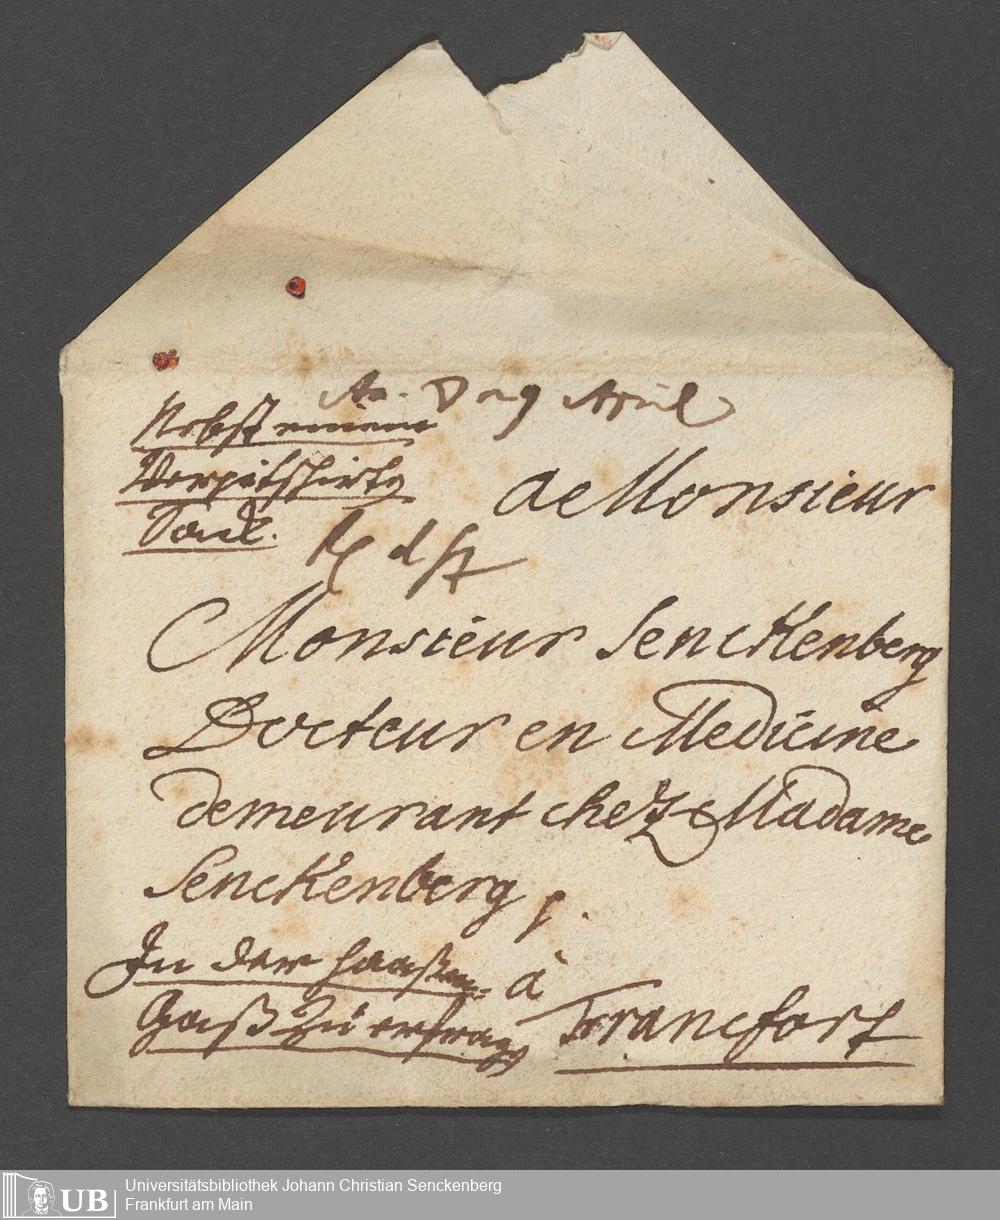 April
Nebst einem
Verpitschirten
Pack.
A Monsieur
Monsieur Senckenberg
Docteur en Medicine
demeurant chez Madame
Senckenberg
In der Haaßen-
Gaß zu erfragen
à
Francfort
Universitätsbibliothek Johann Christian Senckenberg
Frankfurt am Main
UB